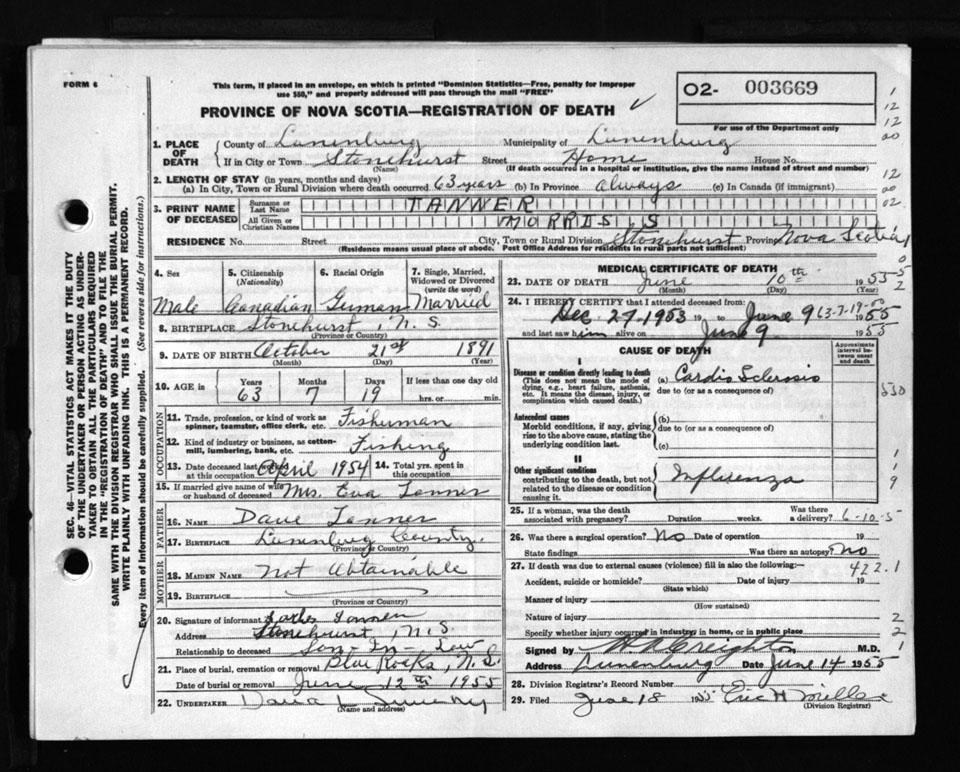 FORM 6
This form, if placed in an envelope, on which is printed "Dominion Statistics—Free, penalty for improper
use $50," and property addressed will pass through the mail "FREE"
PROVINCE OF NOVA SCOTIA—REGISTRATION OF DEATH
O2- 003669
For use of the Department only
1. PLACE OF DEATH
County of Lunenburg Municipality of Lunenburg
If in City or Town Stonehurst Street Home House No.
(Name) (If death occurred in a hospital or institution, give the name instead of street and number)
2. LENGTH OF STAY (in years, months and days)
(a) In City, Town or Rural Division where death occurred 63 years (b) In Province Always (c) In Canada (if immigrant)
3. PRINT NAME OF DECEASED
Surname or Last Name TANNER
All Given or Christian Names MORRIS
RESIDENCE No. Street City, Town or Rural Division Stonehurst Province Nova Scotia
(Residence means usual place of abode. Post Office Address for residents in rural parts not sufficient)
4. Sex Male
5. Citizenship (Nationality) Canadian
6. Racial Origin German
7. Single, Married, Widowed or Divorced (write the word) Married
8. BIRTHPLACE Stonehurst, N.S.
9. DATE OF BIRTH October 21st 1891
(Month) (Day) (Year)
10. AGE in Years 63 Months 7 Days 19 If less than one day old
hrs. or min.
OCCUPATION
11. Trade, profession, or kind of work as spinner, teamster, office clerk, etc. Fisherman
12. Kind of industry or business, as cotton-mill, lumbering, bank, etc. Fishing
13. Date deceased last worked at this occupation April 1954 14. Total yrs. spent in this occupation
15. If married give name of wife or husband of deceased Mrs. Eva Tanner
FATHER
16. NAME Dave Tanner
17. BIRTHPLACE Lunenburg County.
(Province or Country)
MOTHER
18. MAIDEN NAME Not Obtainable
19. BIRTHPLACE
(Province or Country)
20. Signature of informant Tanner
Address Stonehurst, N.S.
Relationship to deceased Son-In-Law
21. Place of burial, cremation or removal Blue Rocks, N.S.
Date of burial or removal June 12th 1955
22. UNDERTAKER
(Name and address)
MEDICAL CERTIFICATE OF DEATH
23. DATE OF DEATH June 10th 1955
(Month) (Day) (Year)
24. I HEREBY CERTIFY that I attended deceased from:
Dec. 27-1953 19 to June 9 1955
and last saw him alive on June 9 1955
CAUSE OF DEATH
Approximate interval between onset and death
I
Disease or condition directly leading to death
(This does not mean the mode of dying, e.g., heart failure, asthenia, etc. It means the disease, injury, or complication which caused death.)
(a) Cardio Sclerosis
due to (or as a consequence of)
Antecedent causes
Morbid conditions, if any, giving rise to the above cause, stating the underlying condition last.
(b)
due to (or as a consequence of)
(c)
II
Other significant conditions
contributing to the death, but not related to the disease or condition causing it.
Influenza
25. If a woman, was the death associated with pregnancy? Duration weeks. Was there a delivery? 6-10-5
26. Was there a surgical operation? No Date of operation 19
State findings Was there an autopsy? No
27. If death was due to external causes (violence) fill in also the following:— 422.1
Accident, suicide or homicide? Date of injury 19
(State which)
Manner of injury
(How sustained)
Nature of injury
Specify whether injury occurred in industry, in home, or in public place
Signed by Creighton M.D.
Address Lunenburg Date June 14 1955
28. Division Registrar's Record Number
29. Filed June 18 1955 Eric H
(Division Registrar)
SEC. 46—VITAL STATISTICS ACT MAKES IT THE DUTY
OF THE UNDERTAKER OR PERSON ACTING AS UNDER-
TAKER TO OBTAIN ALL THE PARTICULARS REQUIRED
IN THE "REGISTRATION OF DEATH" AND TO FILE THE
SAME WITH THE DIVISION REGISTRAR WHO SHALL ISSUE THE BURIAL PERMIT.
WRITE PLAINLY WITH UNFADING INK. THIS IS A PERMANENT RECORD.
Every item of information should be carefully supplied. (See reverse side for instructions.)